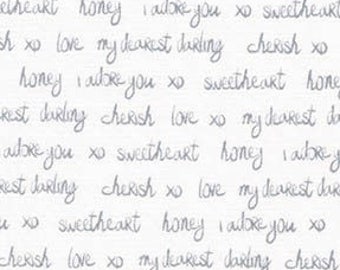 honey i adore you xo sweetheart
cherish xo love my dearest darling cherish xo
honey i adore you xo sweetheart honey
darling cherish love xo my dearest darling
adore you xo sweetheart honey i adore you
darling cherish xo love my dearest
xo sweetheart honey i adore you xo
cherish love xo my dearest darling cherish